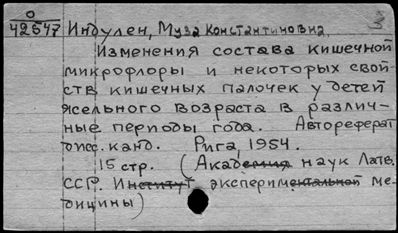 0
42647 Индулен, Муза Константиновна.
Изменения состава кишечной
микрофлоры и некоторых свой-
ств кишечных палочек у детей
ясельного возраста в различ-
ные периоды года. Автореферат
дисс. канд. Рига, 1954.
15 стр. (Академия наук Латв.
ССР. Институт эксперименталъной ме-
дицины)